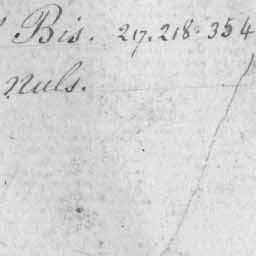 Bis. 217. 218. 354
nuls.